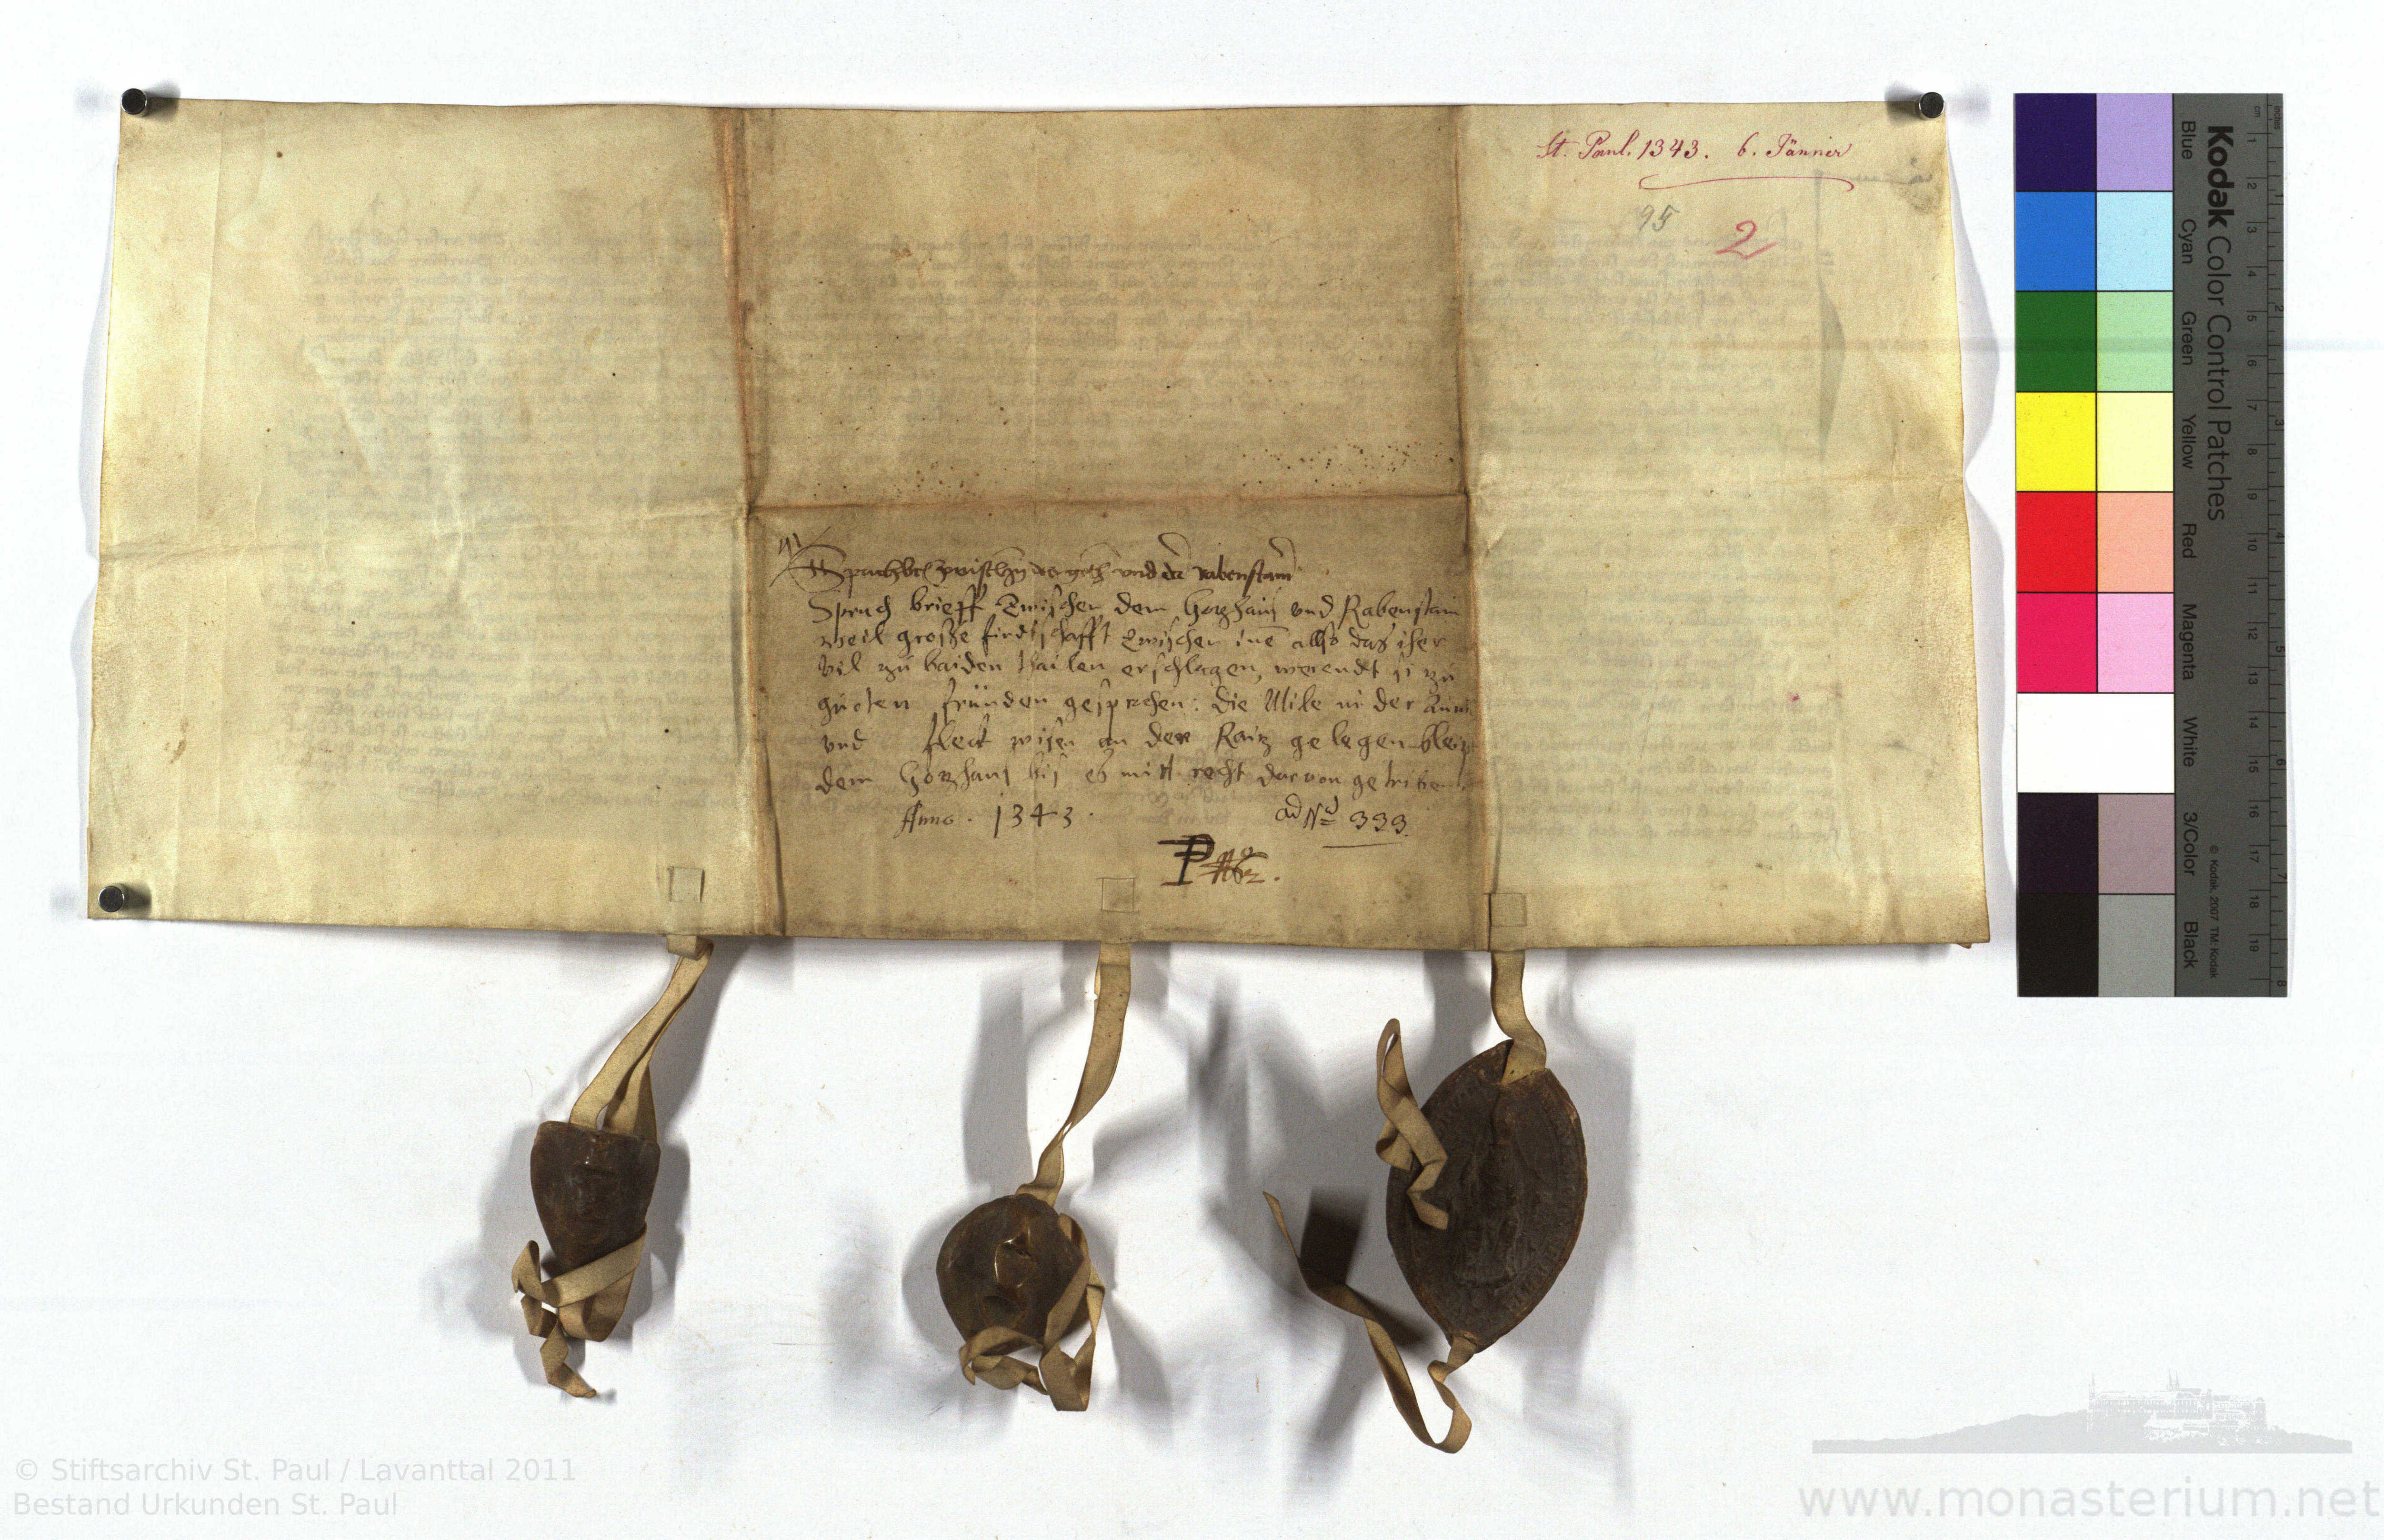 St. Paul. 1343. 6. Jänner
95
2
Spruchbrief zwischen gotzh und rabenstain
Spruch brieff Zwischen dem Gozhaus vnd Rabenstain
weil große findtschafft Zwischen ine allso das iher
vil zu baiden thailen erschlagen, werendt si zu
guoten fründen gesprochen: die Mile in der
vnd fleck wisen an der Rainz gelegen bleibt
dem Gozhaus bis es mitt recht dar von getriben
Anno. 1343.
ad No 333.
P
Kodak Color Control Patches
Blue Cyan Green Yellow Red Magenta White 3/Color Black
© Kodak, 2007 TM: Kodak
cm 1 2 3 4 5 6 7 8 9 10 11 12 13 14 15 16 17 18 19
inches 1 2 3 4 5 6 7 8
© Stiftsarchiv St. Paul / Lavanttal 2011
Bestand Urkunden St. Paul
www.monasterium.net